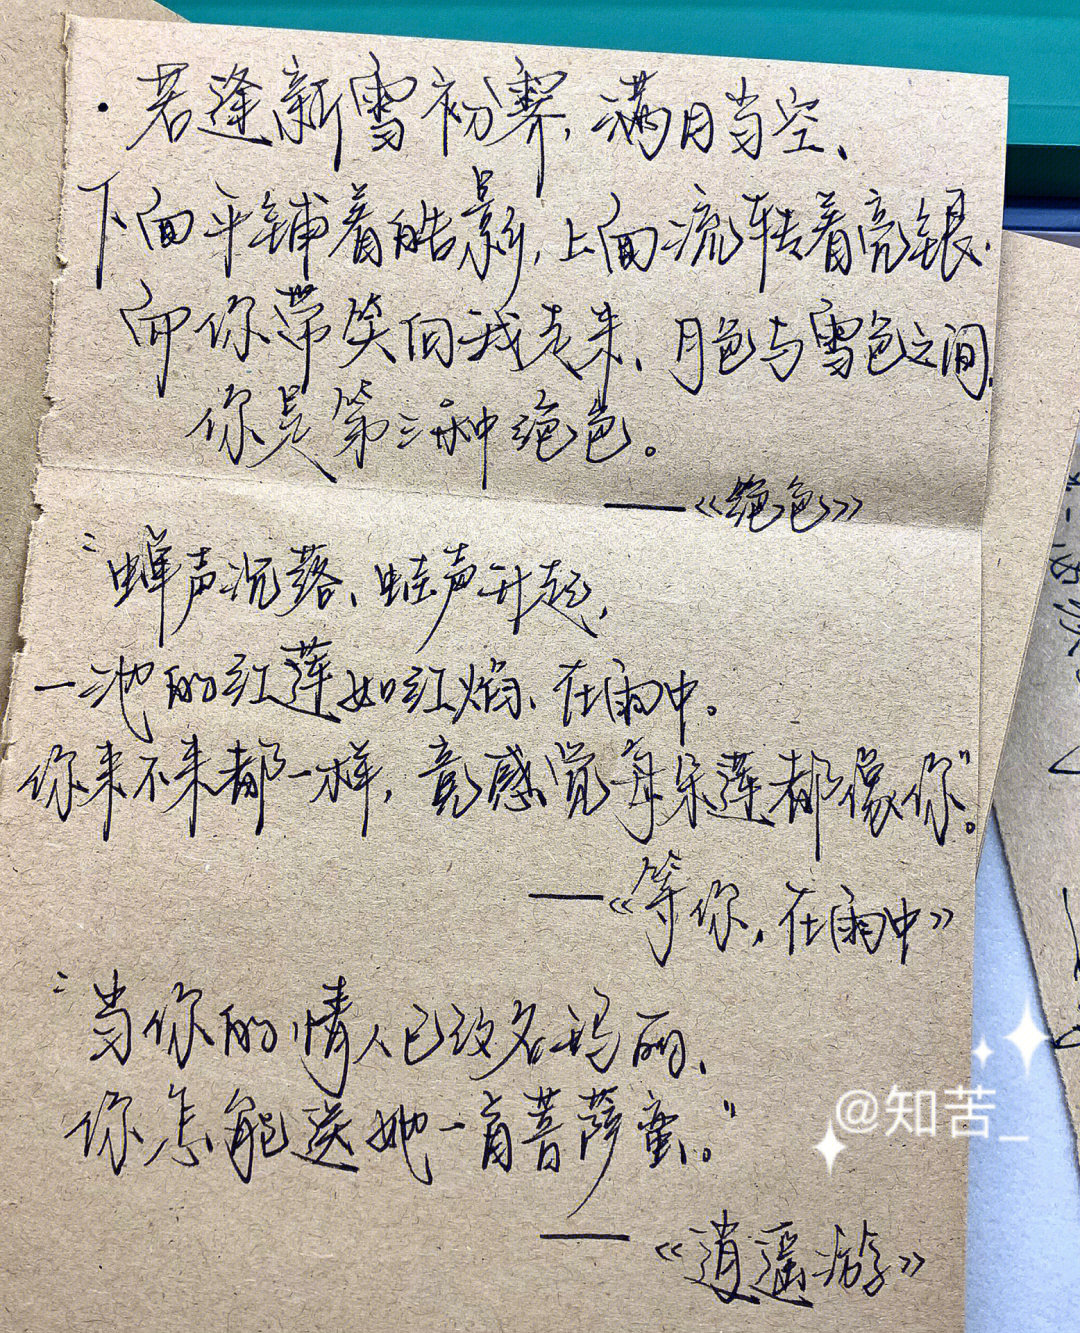 ·若逢新雪初霁,满月当空、
下面平铺着皓影,上面流转着亮银.
而你带笑向我走来、月色与雪色之间,
你是第三种绝色。
——《绝色》
"蝉声沉落、蛙声升起,
一池的红莲如红焰、在雨中。
你来不来都一样,竟感觉每朵莲都像你"。
——《等你,在雨中》
"当你的情人已改名玛丽、
你怎能送她一首菩萨蛮。"
——《逍遥游》
@知苦_